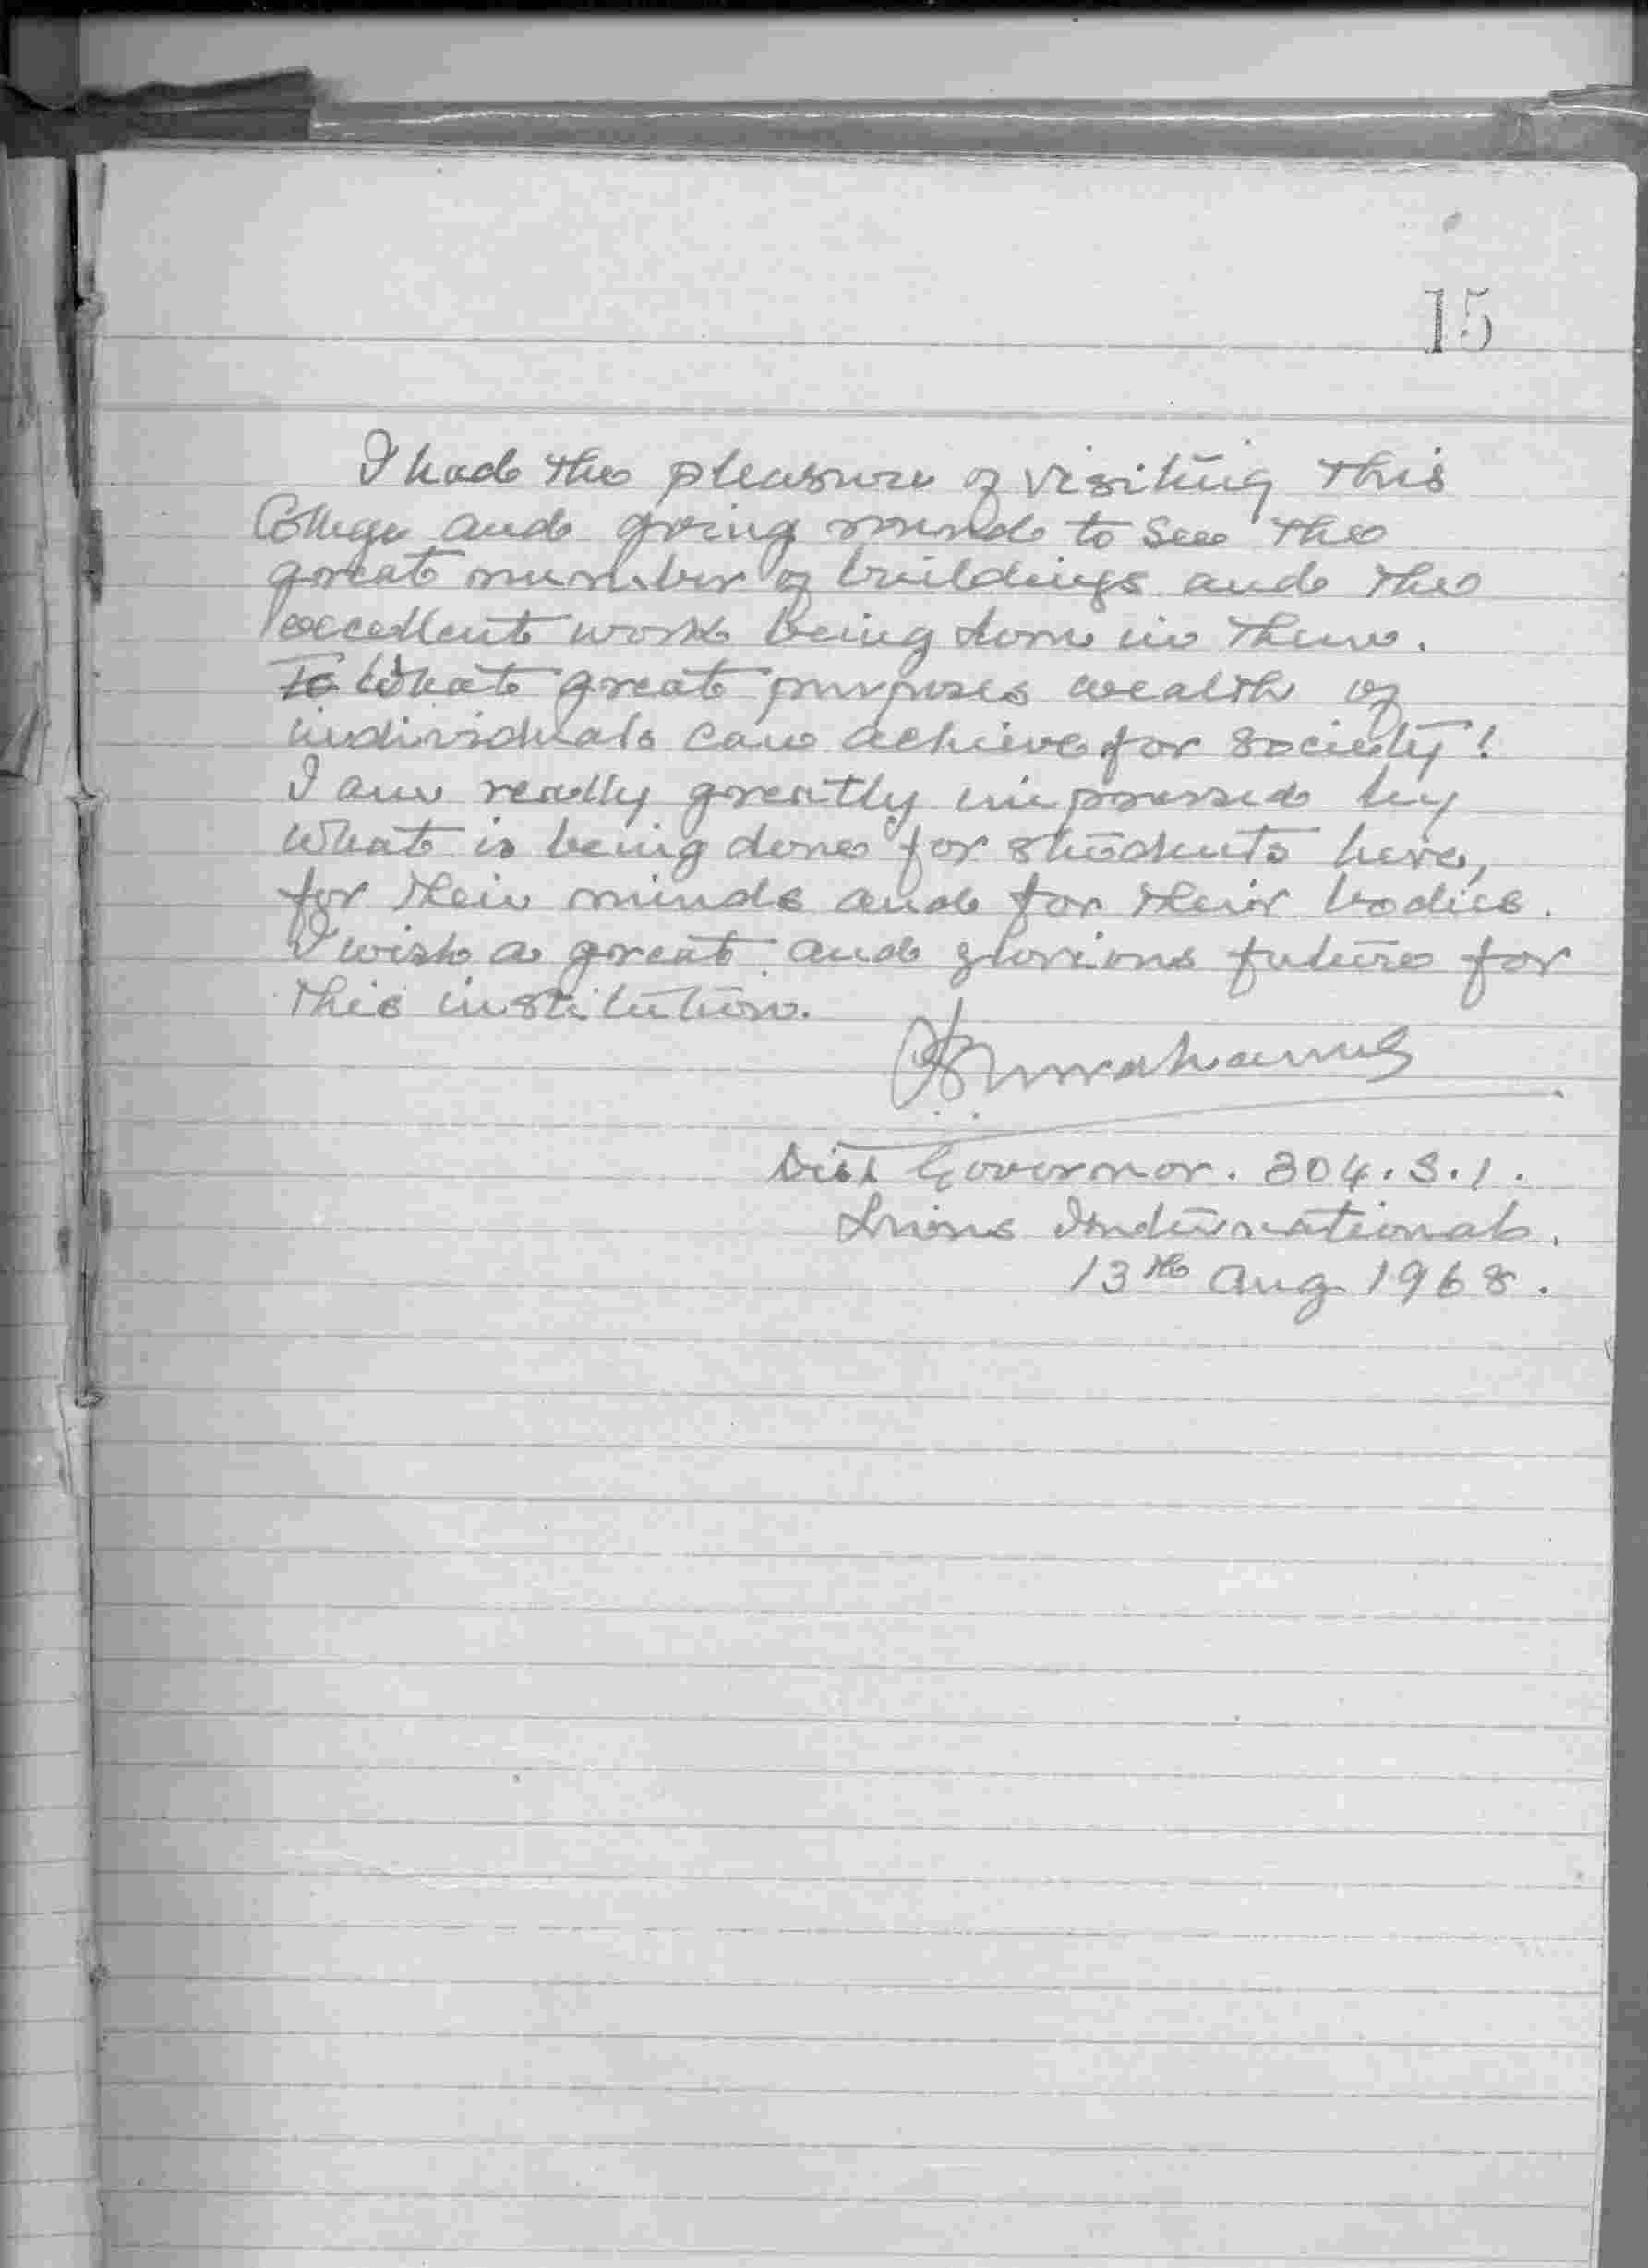 15
I had the pleasure of visiting this
College and going round to see the
great number of buildings and the
excellent work being done in them.
To What great purposes wealth of
individuals can achieve for society!
I am really greatly impressed by
what is being done for students here,
for their minds and for their bodies.
I wish a great and glorious future for
this institution.
Dist Governor. 304.S.1.
Lions International.
13th Aug 1968.